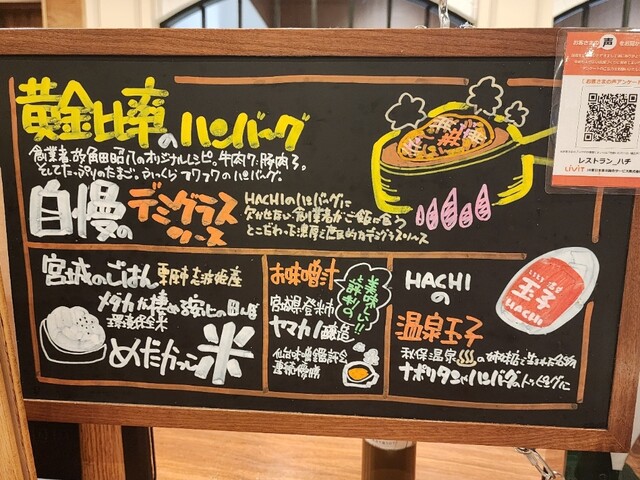 黄金比率のハンバーグ
創業者故角田昭八のオリジナルレシピ。牛肉7:豚肉3。
そしてたっぷりのたまご。ふっくらフワフワのハンバーグ。
自慢の
デミグラス
ソース
HACHIのハンバーグに
欠かせない創業者がご飯に合う
とこだわった濃厚と圧倒的なデミグラスソース
宮城のごはん
メダカが棲める安心の田んぼ
環境保全米
めだかっこ米
お味噌汁
美味しい
宮城県登米市
ヤマカノ醸造
HACHI
の
温泉玉子
秋保温泉
ナポリタンやハンバーグのトッピングに
玉子
HACHI
お客さまの声
お客さまの声アンケート
レストラン_ハチ
LiViT